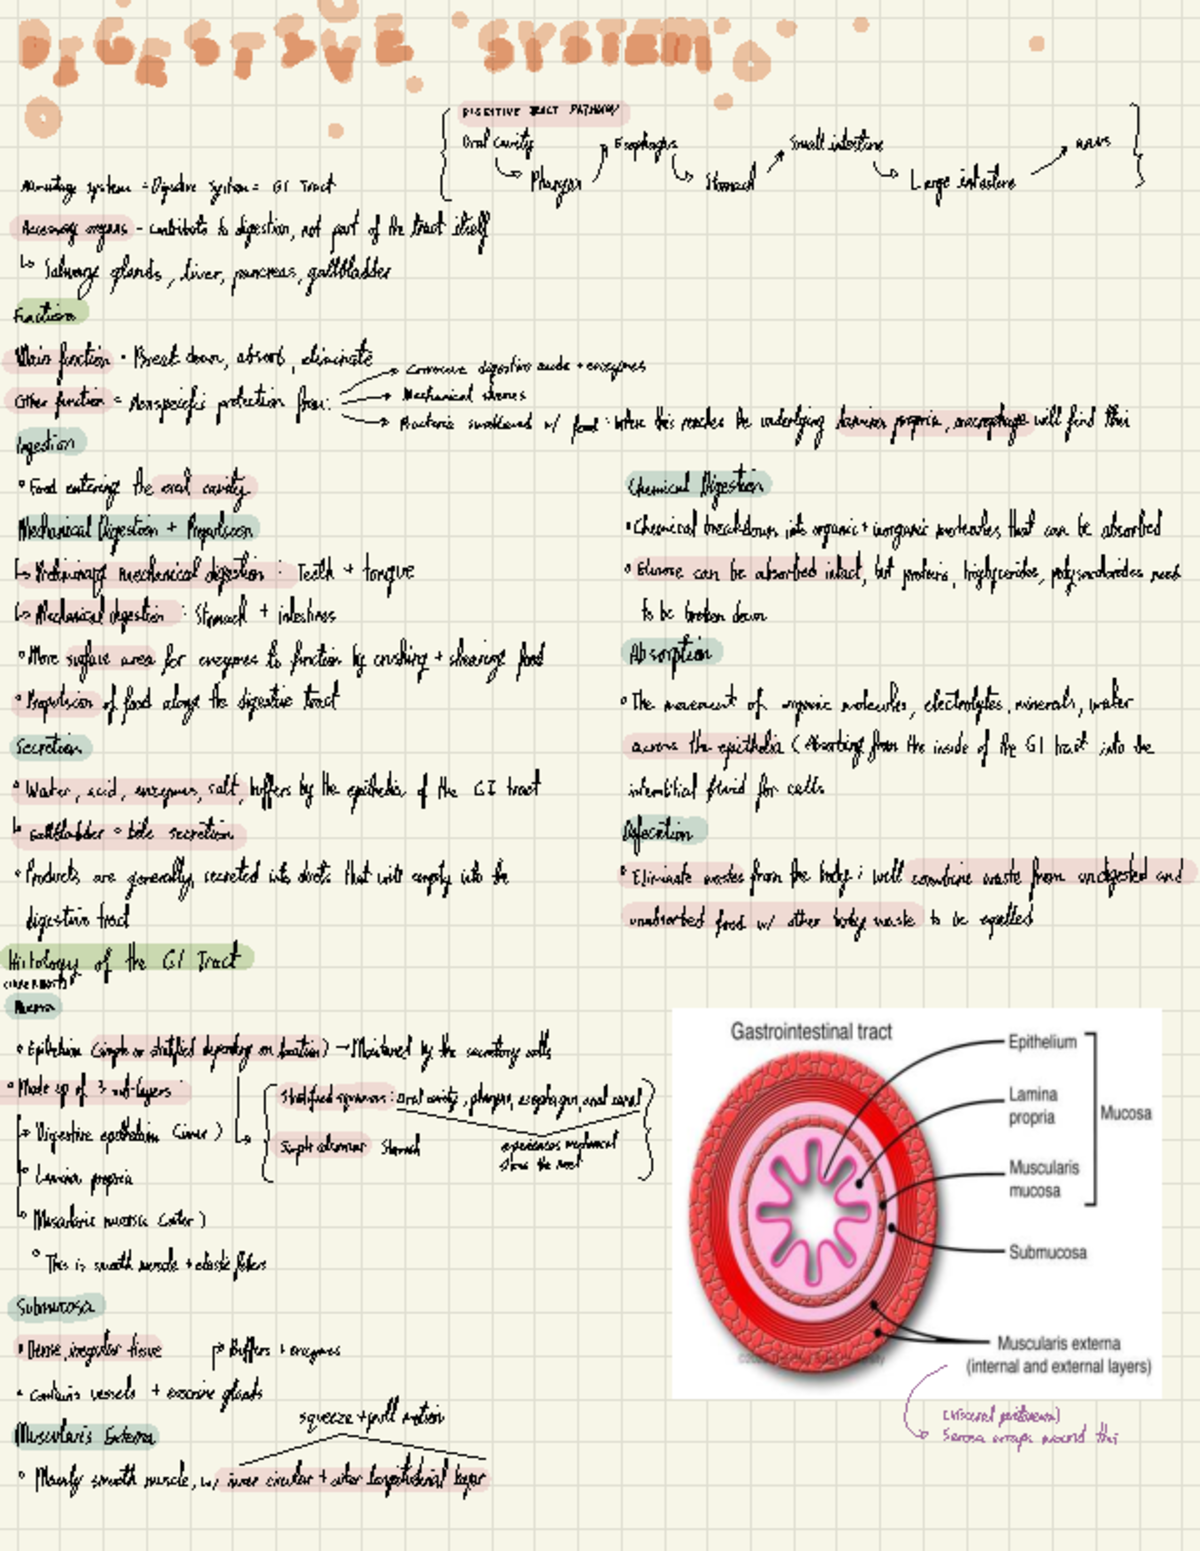 DIGESTIVE SYSTEM
DIGESTIVE TRACT PATHWAY
Oral cavity
Pharynx
Esophagus
Stomach
Small intestine
Large intestine
anus
system = Digestive System = GI Tract
Accessory organs - contribute to digestion, not part of the tract itself
↳ Salivary glands, liver, pancreas, gallbladder
Functions
Main function • Break down, absorb, eliminate
Other function = Nonspecific protection from:
→ Corrosive digestive acids + enzymes
→ Mechanical stresses
→ Bacteria swallowed w/ food: When this reaches the underlying lamina propria, macrophage will find this
Ingestion
• Food entering the oral cavity
Mechanical Digestion + Propulsion
↳ Preliminary mechanical digestion: Teeth + tongue
↳ Mechanical digestion: Stomach + intestines
• More surface area for enzymes to function by crushing + shearing food
• Propulsion of food along the digestive tract
Secretion
• Water, acid, enzymes, salt, buffers by the epithelia of the GI tract
↳ Gallbladder = bile secretion
• Products are generally secreted into ducts that will empty into the
digestive tract
Chemical Digestion
• Chemical breakdown into organic + inorganic molecules that can be absorbed
• Glucose can be absorbed intact, but proteins, triglycerides, polysaccharides need
to be broken down
Absorption
• The movement of organic molecules, electrolytes, minerals, water
across the epithelia (absorbing from the inside of the GI tract into the
interstitial fluid for cells
Defecation
• Eliminate wastes from the body; will combine waste from undigested and
unabsorbed food w/ other body waste to be expelled
Histology of the GI Tract
(INNERMOST)
Mucosa
• Epithelium (simple or stratified depending on location) → Moistened by the secretory cells
• Made up of 3 sub-layers:
Stratified squamous: Oral cavity, pharynx, esophagus, anal canal
Simple columnar Stomach
experiences mechanical
stress the most
→ Digestive epithelium (inner)
→ Lamina propria
→ Muscularis mucosa (outer)
• This is smooth muscle + elastic fibers
Submucosa
• Dense, irregular tissue
→ Buffers + enzymes
• Contains vessels + exocrine glands
Muscularis Externa
squeeze + pull motion
• Mainly smooth muscle, w/ inner circular + outer longitudinal layer
Gastrointestinal tract
Epithelium
Lamina
propria
Mucosa
Muscularis
mucosa
Submucosa
Muscularis externa
(internal and external layers)
(visceral peritoneum)
Serosa wraps around this